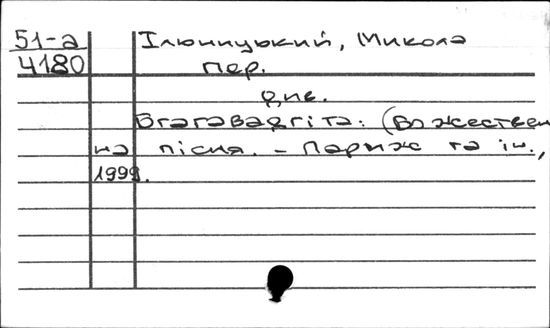 51-а
4180
Ільницький, Микола
пер.
див.
Бгагавадгіта: (Божествен
на пісня. – Париж та ін.,
1999.